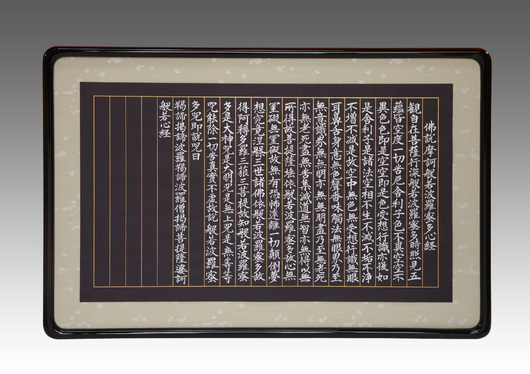 佛説摩訶般若波羅蜜多心經
觀自在菩薩行深般若波羅蜜多時照見五
蘊皆空度一切苦厄舎利子色不異空空不
異色色即是空空即是色受想行識亦復如
是舎利子是諸法空相不生不滅不垢不浄
不増不減是故空中無色無受想行識無眼
耳鼻舌身意無色聲香味觸法無眼界乃至
無意識界無無明亦無無明盡乃至無老死
亦無老死盡無苦集滅道無智亦無得以無
所得故菩提薩埵依般若波羅蜜多故心無
罣礙無罣礙故無有恐怖遠離一切顛倒夢
想究竟涅槃三世諸佛依般若波羅蜜多故
得阿耨多羅三藐三菩提故知般若波羅蜜
多是大神呪是大明呪是無上呪是無等等
呪能除一切苦真實不虚故説般若波羅蜜
多呪即説呪曰
羯諦羯諦波羅羯諦波羅僧羯諦菩提薩婆訶
般若心經